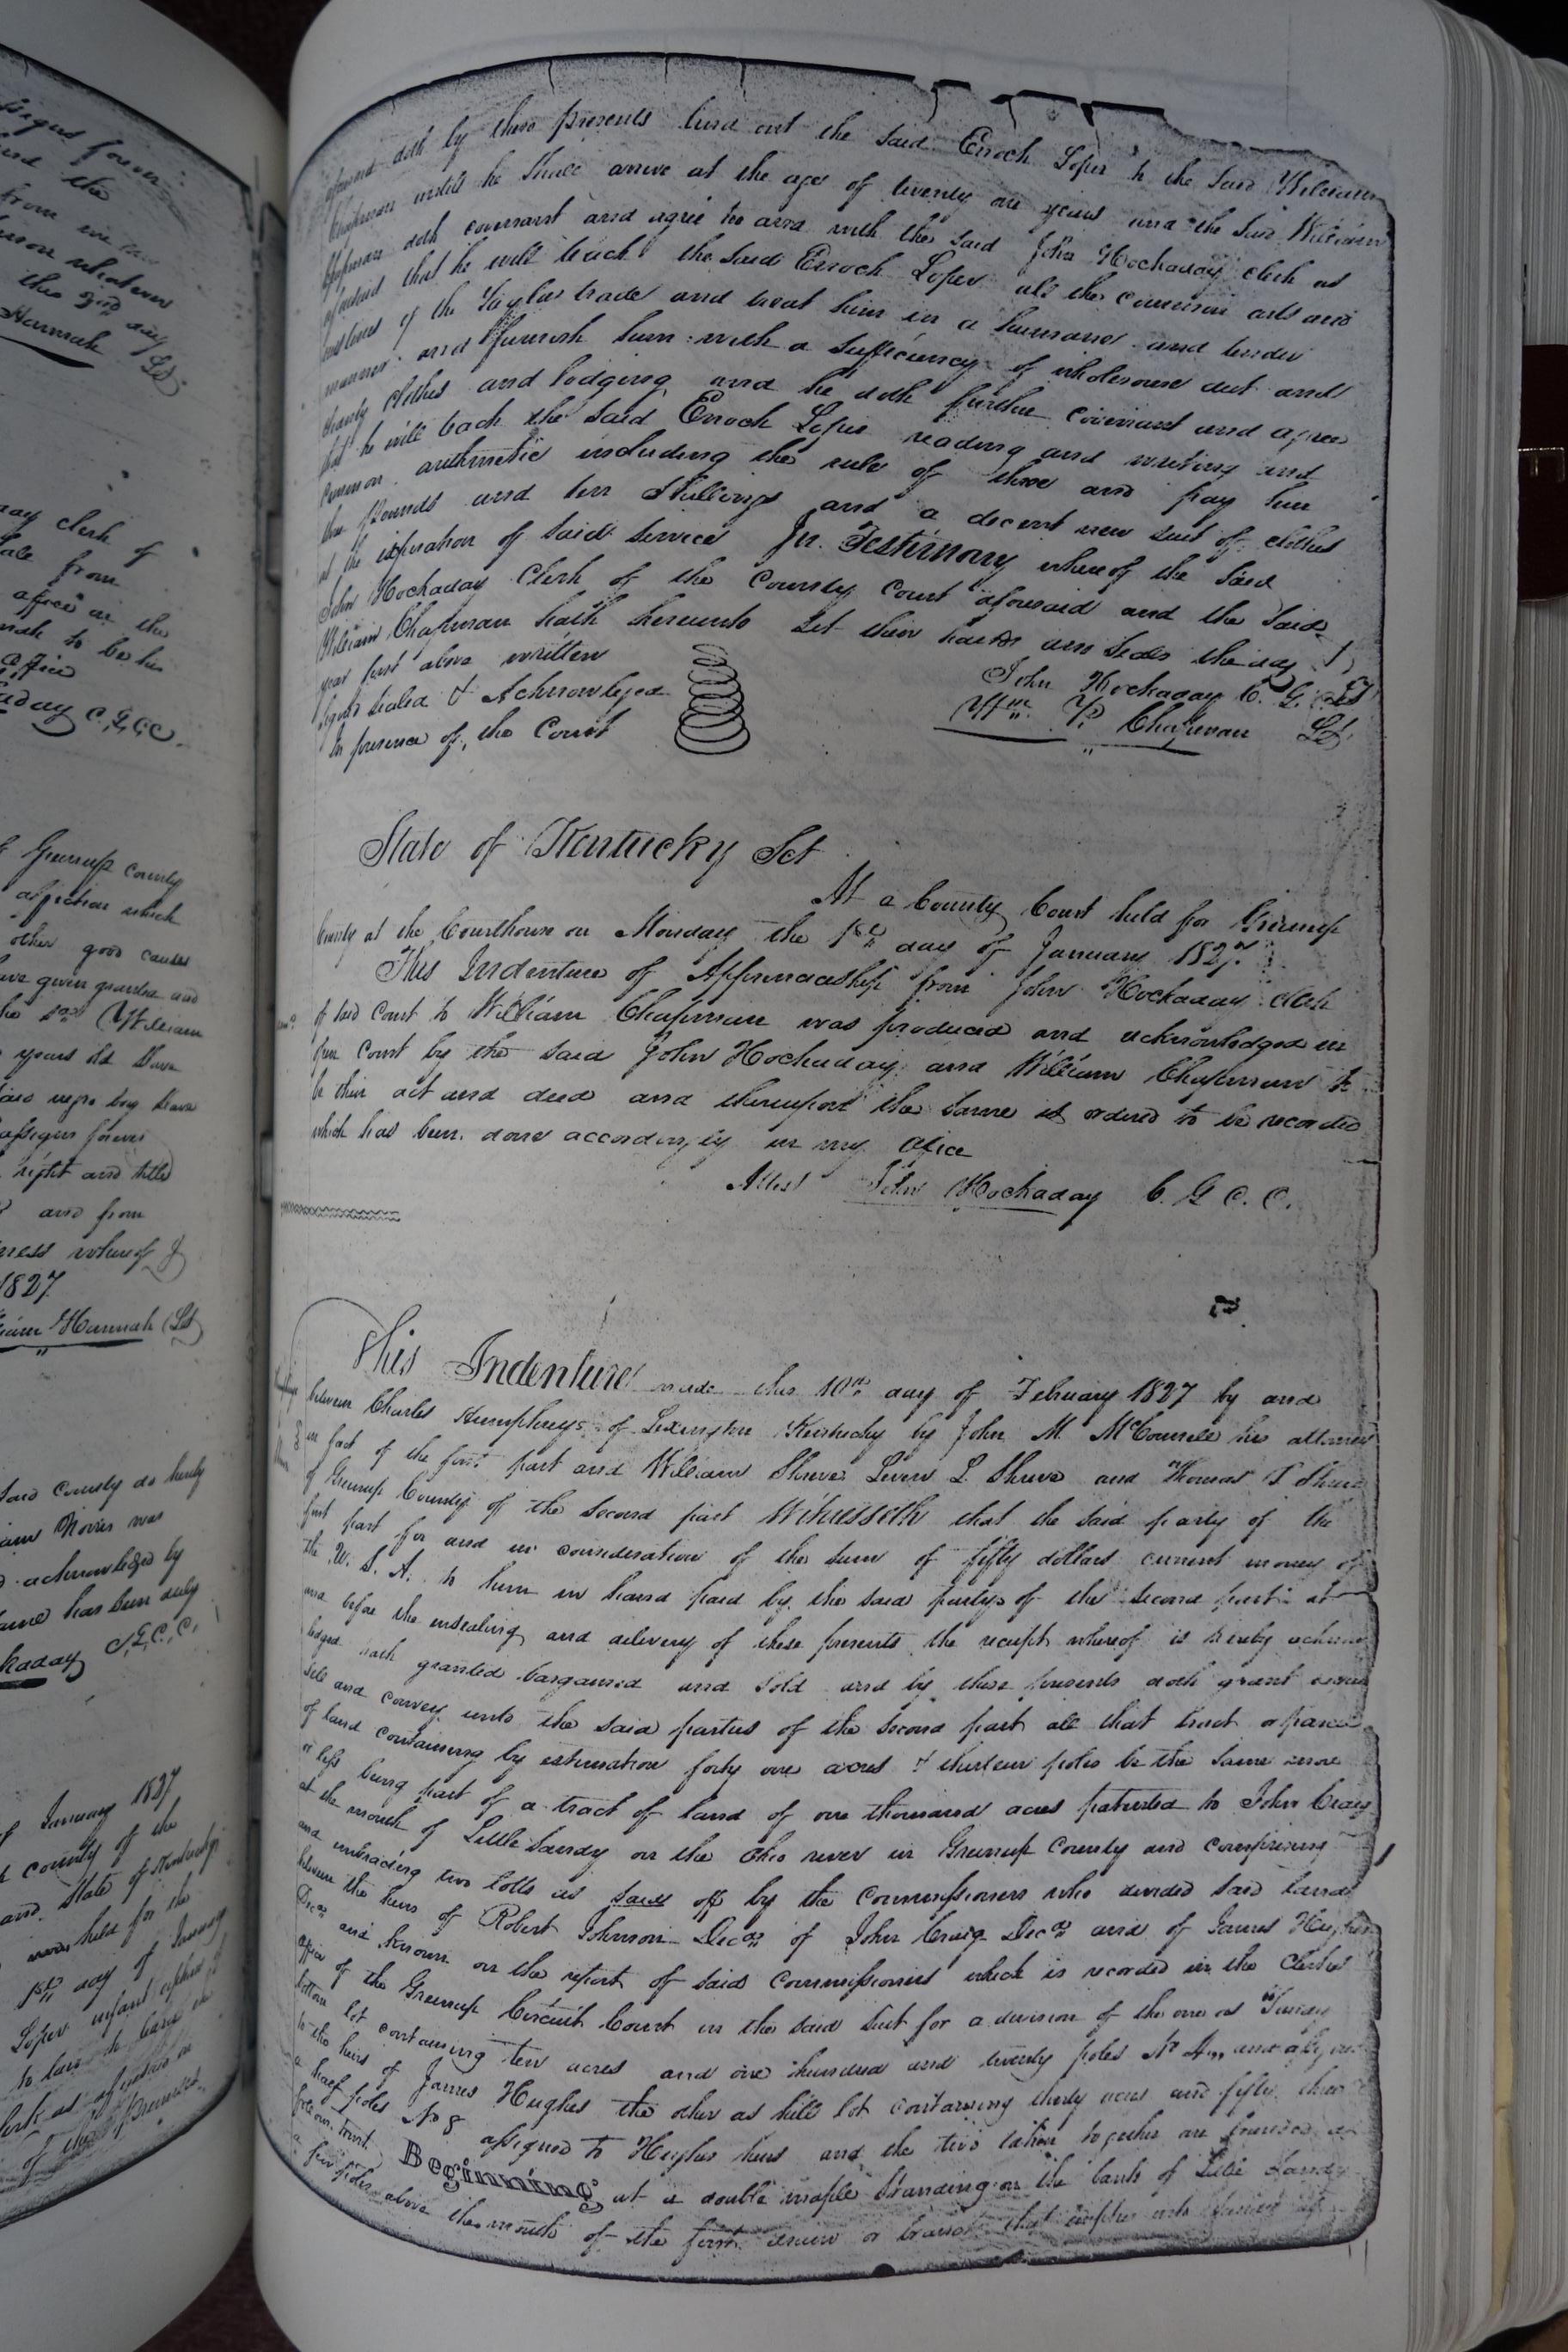 assigns forever
and the
from me
person whatever
this 2nd day
Hannah
LS
clerk of
from
office in the
to be his
office
C. G. C. C.
Greenup County
affection which
other good causes
have given granted and
William
years old
said negro boy
assigns forever
right and title
and from
witness whereof I
1827
William Hannah (LS)
said County do hereby
Norris was
acknowledged by
same has been duly
Hockaday C. G. C. C.
of January 1827
County of the
and State of Kentucky
held for the
1st day of January
Loper infant orphan of
to learn
Clerk as aforesaid
of the premises
aforesaid doth by these presents bind out the said Enoch Loper to the said William
Chapman untill he shall arrive at the age of twenty one years and the said William
Chapman doth covenant and agree to and with the said John Hockaday clerk as
aforesaid that he will teach the said Enoch Loper all the common arts and
misteries of the Taylor trade and treat him in a humane and tender
manner and furnish him with a sufficiency of wholesome diet and
cleanly clothes and lodging and he doth further covenant and agree
that he will teach the said Enoch Loper reading and writing and
common arithmetic including the rule of three and pay him
three pounds and ten shillings and a decent new suit of clothes
at the expiration of said service In Testimony whereof the said
John Hockaday Clerk of the County Court aforesaid and the said
William Chapman hath hereunto set their hands and seals the day &
year first above written
John Hockaday C. G. LS
Signed Sealed & Acknowledged
Wm. P. Chapman LS
In presence of the Court
State of Kentucky Sct
At a County Court held for Greenup
County at the Courthouse on Monday the 1st day of January 1827.
This Indenture of Apprenticeship from John Hockaday Clerk
of said Court to William Chapman was produced and acknowledged in
open Court by the said John Hockaday and William Chapman to
be their act and deed and thereupon the same is ordered to be recorded
which has been done accordingly in my office
Attest John Hockaday C. G. C. C.
This Indenture made this 10th day of February 1827 by and
between Charles Humphreys of Lexington Kentucky by John M. McConnell his attorney
in fact of the first part and William Shreve Leven L. Shreve and Thomas T Shreve
of Greenup County of the second part Witnesseth that the said party of the
first part for and in consideration of the sum of fifty dollars current money of
the U. S. A. to him in hand paid by the said partys of the second part at
and before the ensealing and delivery of these presents the receipt whereof is hereby acknow
ledged hath granted bargained and sold and by these presents doth grant
sell and convey unto the said parties of the second part all that tract or parcel
of land containing by estimation forty one acres & thirteen poles be the same more
or less being part of a tract of land of one thousand acres patented to John Craig
at the mouth of Little Sandy on the Ohio river in Greenup County and comprising
and embracing two lotts as laid off by the Commissioners who divided said land
between the heirs of Robert Johnson Decd of John Craig Decd and of James Hughes
Decd and known on the report of said Commissioners which is recorded in the Clerks
office of the Greenup Circuit Court in the said suit for a division of the one as Sandy
bottom lot containing ten acres and one hundred and twenty poles No and assigned
to the heirs of James Hughes the other as hill lot containing thirty acres and fifty three
a half poles No 8 assigned to Hughes heirs and the two taken together are
follows towit. Beginning at a double maple standing on the bank of Little Sandy
a few poles above the mouth of the first drain or branch that empties into